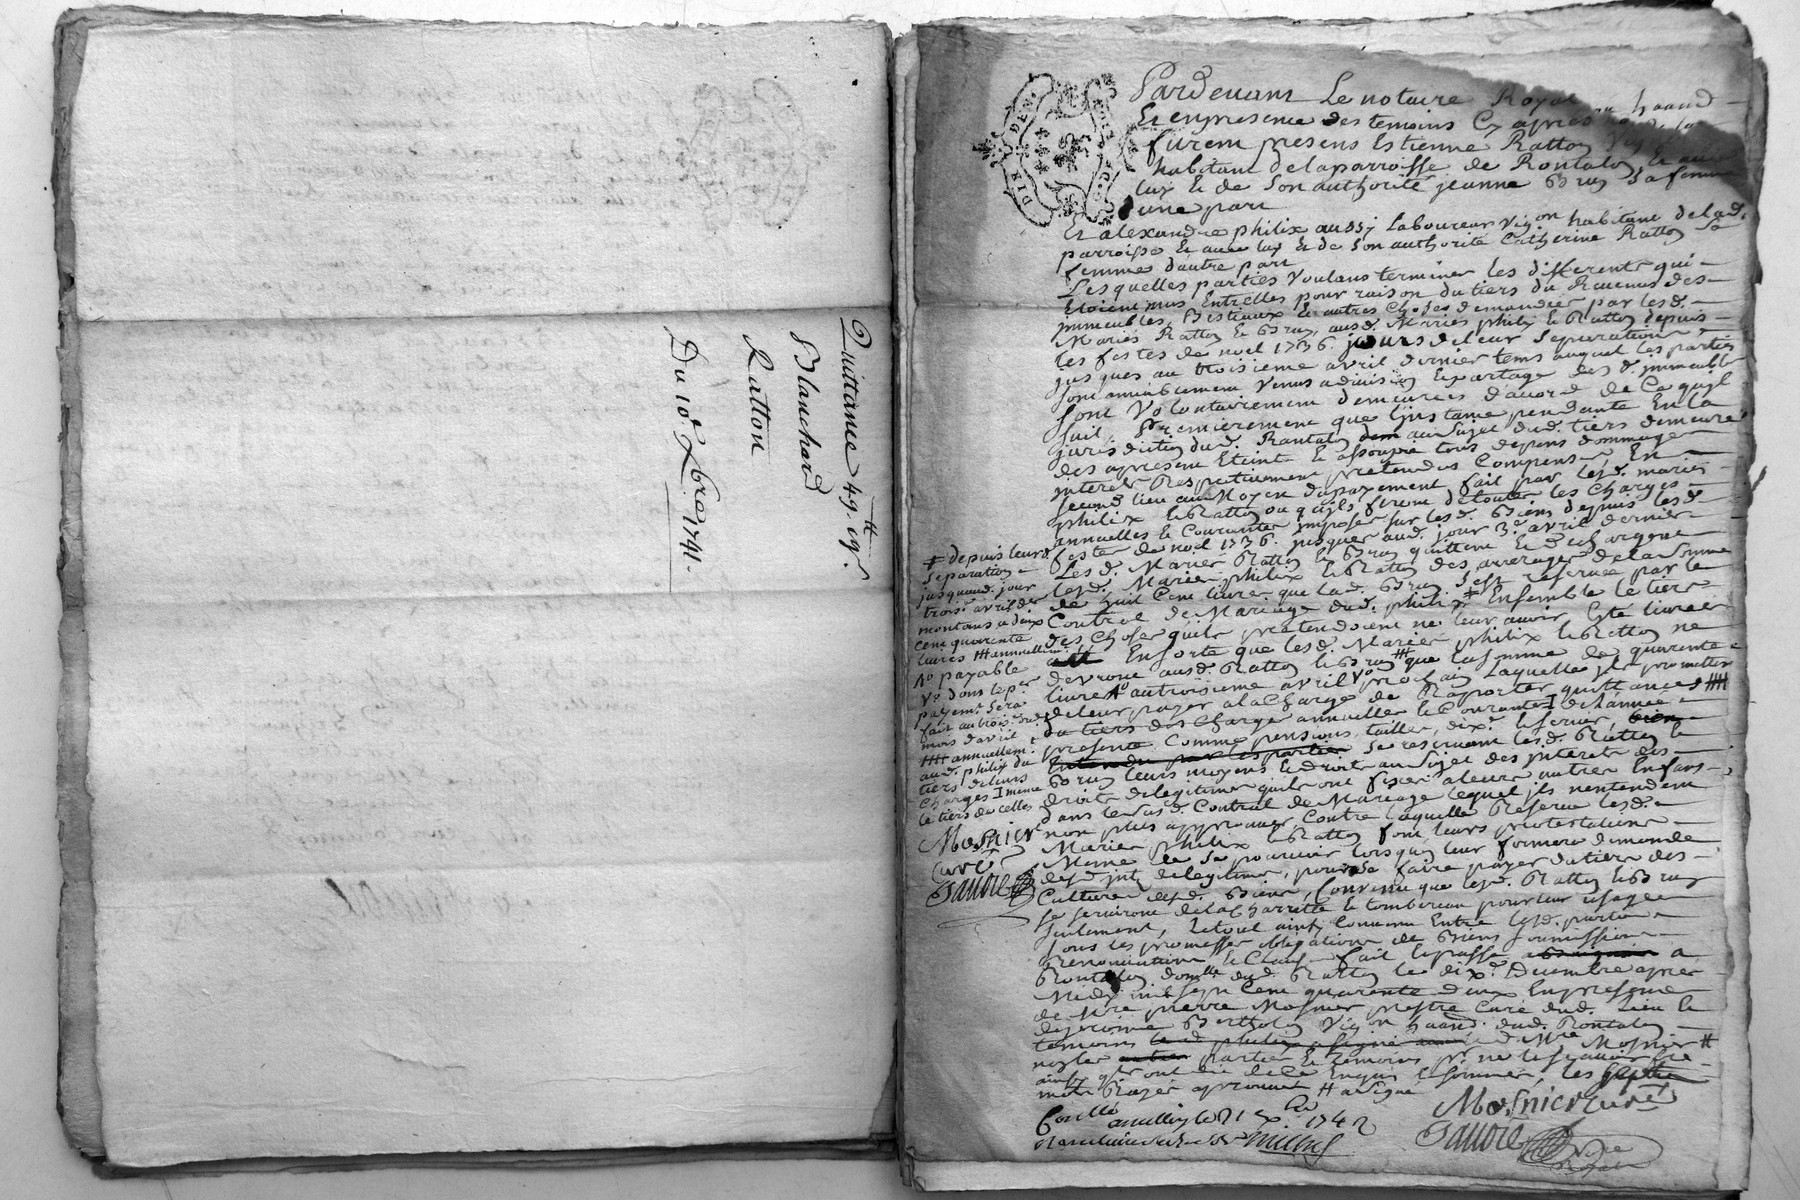 Quittance 49.# 19s
Blanchard
Ratton
Du 10e Xbre 1741.
DE LION
Pardevant Le notaire Royal
Et en presence des temoins Cy apres
furent presens Estienne Ratton
habitant de la parroisse de Rontalon Et avec
luy Et de son authorité jeanne Brun sa femme
d'une part
Et alexandre philix aussy Laboureur Vig.on habitant de lad.
parroisse Et avec luy Et de son authorité Catherine Ratton sa
femme d'autre part
Lesquelles parties Voulans terminer les differents qui
Etoient mus Entrelles pour raison du tiers du Revenus des
immeubles, Bestiaux Et autres Choses demandées par lesd.
Mariés Ratton Et Brun, ausd. Mariés philix Et Ratton depuis
les festes de noel 1736. jours de leur separation
jusques au troisieme avril dernier tems auquel les parties
sont amiablement Venus a division Et partage desd. immeubles
sont Volontairement demeurées d'acord de Ce quil
suit, Premierement que linstance pendante En la
jurisdiction dud. Rontalon au sujet dud. tiers demeure
des apresent Eteinte Et assoupie tous depens dommages
interets Respectivement pretendus Compensés, En
second lieu au Moyen du payement fait par lesd. mariés
philix Et Ratton ou quils feront de toutes les Charges
annuelles Et Courantes imposés sur lesd. Biens depuis lesd.
festes de noel 1736. jusques aud. jour 3e avril dernier
Lesd. Mariés Ratton Et Brun quittent Et dechargent
lesd. Mariés philix Et Ratton des arrerages de la somme
de huit Cent livres que lad. Brun s'est reservée par le
Contrat de Mariage dud. philix # Ensemble le tiers
des Choses quils pretendoient ne leur avoir Eté livrées
Ensorte que lesd. Mariés philix Et Ratton ne
devront ausd. Ratton Et Brun ## que la somme de quarante
livres Ao au troisieme avril Vo prochain Laquelle ils promettent
de leur payer a la Charge de Raporter quittances ####
du tiers des Charges annuelles Et Courantes I de l'année
presente Comme pensions, tailles, dixe. Et servis,
Entendu par les parties se reservant lesd. Ratton Et
Brun leurs moyens Et droits au sujet des interets des
droits de legitimes quils ont fixés a leurs autres Enfans
dans le susd. Contrat de Mariage lequel ils nentendent
non plus approuver Contre laquelle Reserve lesd.
Mariés philix Et Ratton font leurs protestations
Meme de se pourvoir lorsquon leur formera demande
desd. inte. de legitimes, pour se faire payer du tiers des
Cultures desd. Biens, Convenu que lesd. Ratton Et Brun
se serviront de la Charrette Et tombereau pour leur usage
seulement, Et tout ainsy Convenu Entre lesd. parties
sous les promesses obligations de Biens soumissions
Renonciations Et Clauses fait Et passé a
Rontalon domlle dud. Ratton le dixe. Decembre apres
Midy mil sept Cent quarante deux En presence
de Mre pierre Mosnier prestre Curé dud. Lieu Et
de jerosme Bertholon Vigon haand. dud. Rontalon
temoins led. Mre Mosnier #
parties Et temoins pour ne le sçavoir
ainsy quils ont dit de Ce Enquis Et sommés, les
mots Rayés aprouvant # a signé
Mosnier curé
Savoie nore
Royal
1742
# depuis leurd.
separation
jusquaud. jour
troise. avril der
montans a deux
cent quarante
livres ## annuellem.
Ao payable
Vo dont le per
payemt. sera
fait au trois.
mois d'avril
#### annuellem.t
aud. philix du
tiers de leurs
Charges I meme
le tiers de celles
Mosnier
curé
Savoie